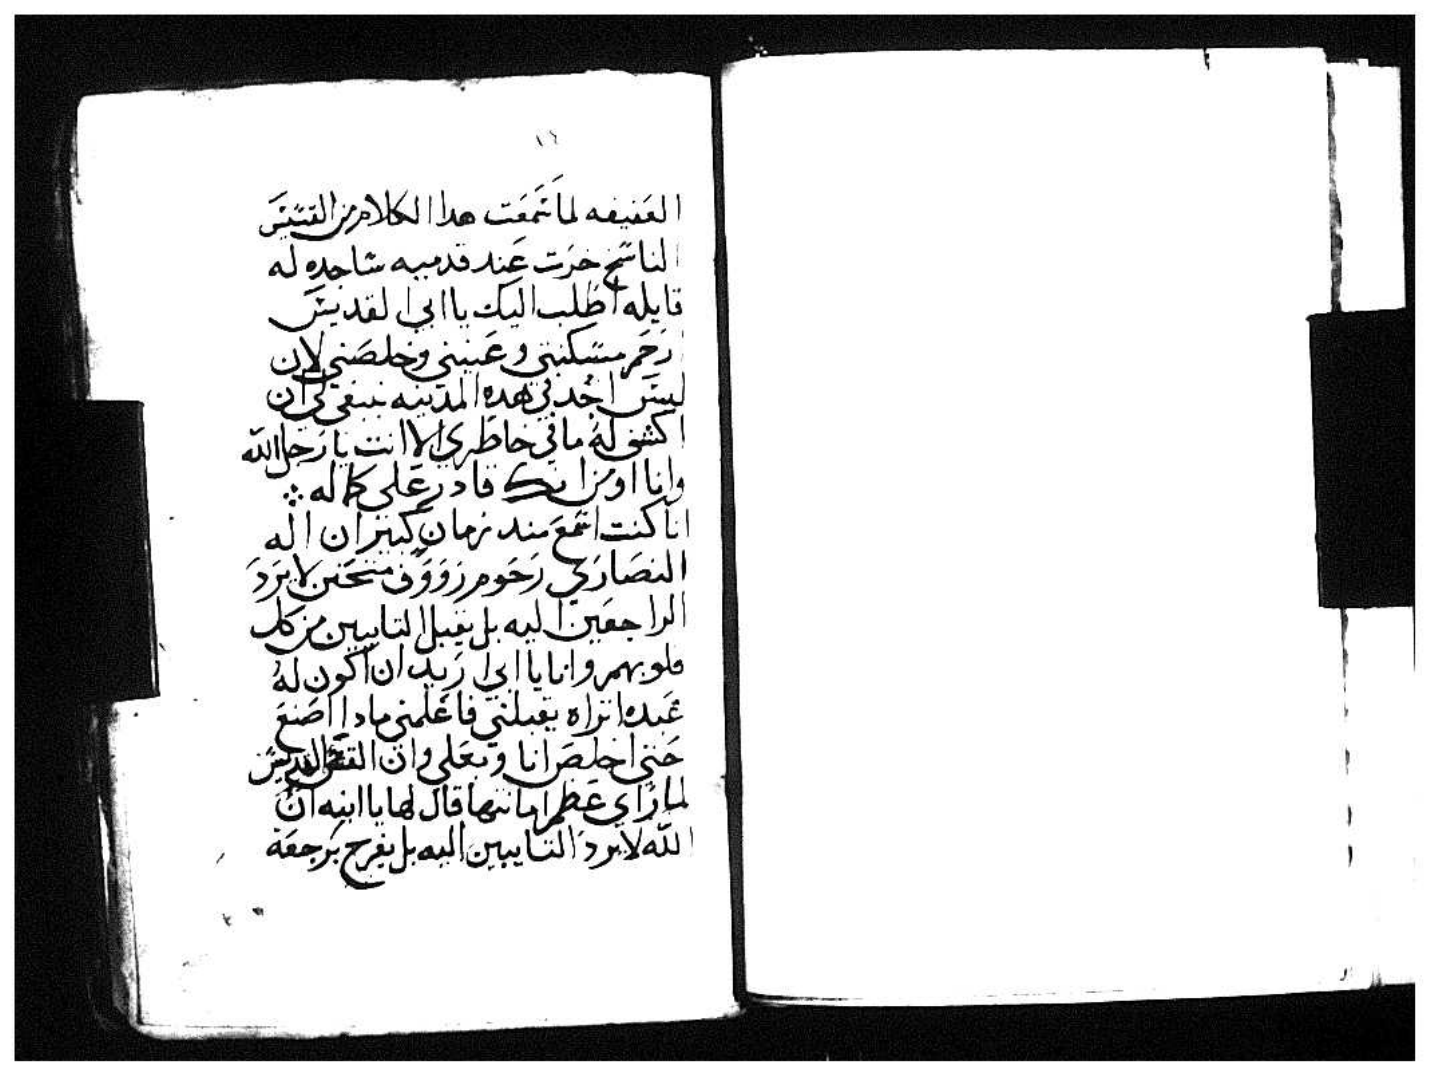 ١٦
العفيفه لما سمعت هدا الكلام من القديس
الناسخ خرت عند قدميه ساجده له
قايله اطلب اليك يا ابي القديس
ارحم مسكنتي وعينني وخلصني لان
ليس احد في هده المدينه ينبغي لي ان
اكشف له ما في خاطري الا انت يا رجل الله
وانا اومن انك قادر على كماله
انا كنت اسمع مند زمان كتير ان اله
النصارى رحوم رووف متحنن لا يرد
الراجعين اليه بل يقبل التايبين من كل
قلوبهم وانا يا ابي اريد ان اكون له
عبده اتراه يقبلني فاعلمني مادا اصنع
حتى اخلص انا وبعلي وان القس القديس
لما راى عظم امانتها قال لها يا ابنه ان
الله لا يرد التايبين اليه بل يفرح برجعة